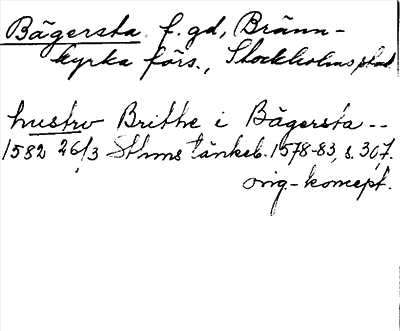 Bägersta f.gd, Bränn-
kyrka förs., Stockholms stad
hustrv Britthe i Bägersta --
1582 26/3 Sthms tänkeb. 1578-83, s. 307.
orig.-koncept.